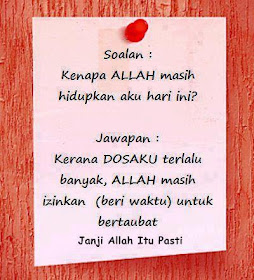 Soalan :
Kenapa ALLAH masih
hidupkan aku hari ini?
Jawapan :
Kerana DOSAKU terlalu
banyak, ALLAH masih
izinkan (beri waktu) untuk
bertaubat
Janji Allah Itu Pasti